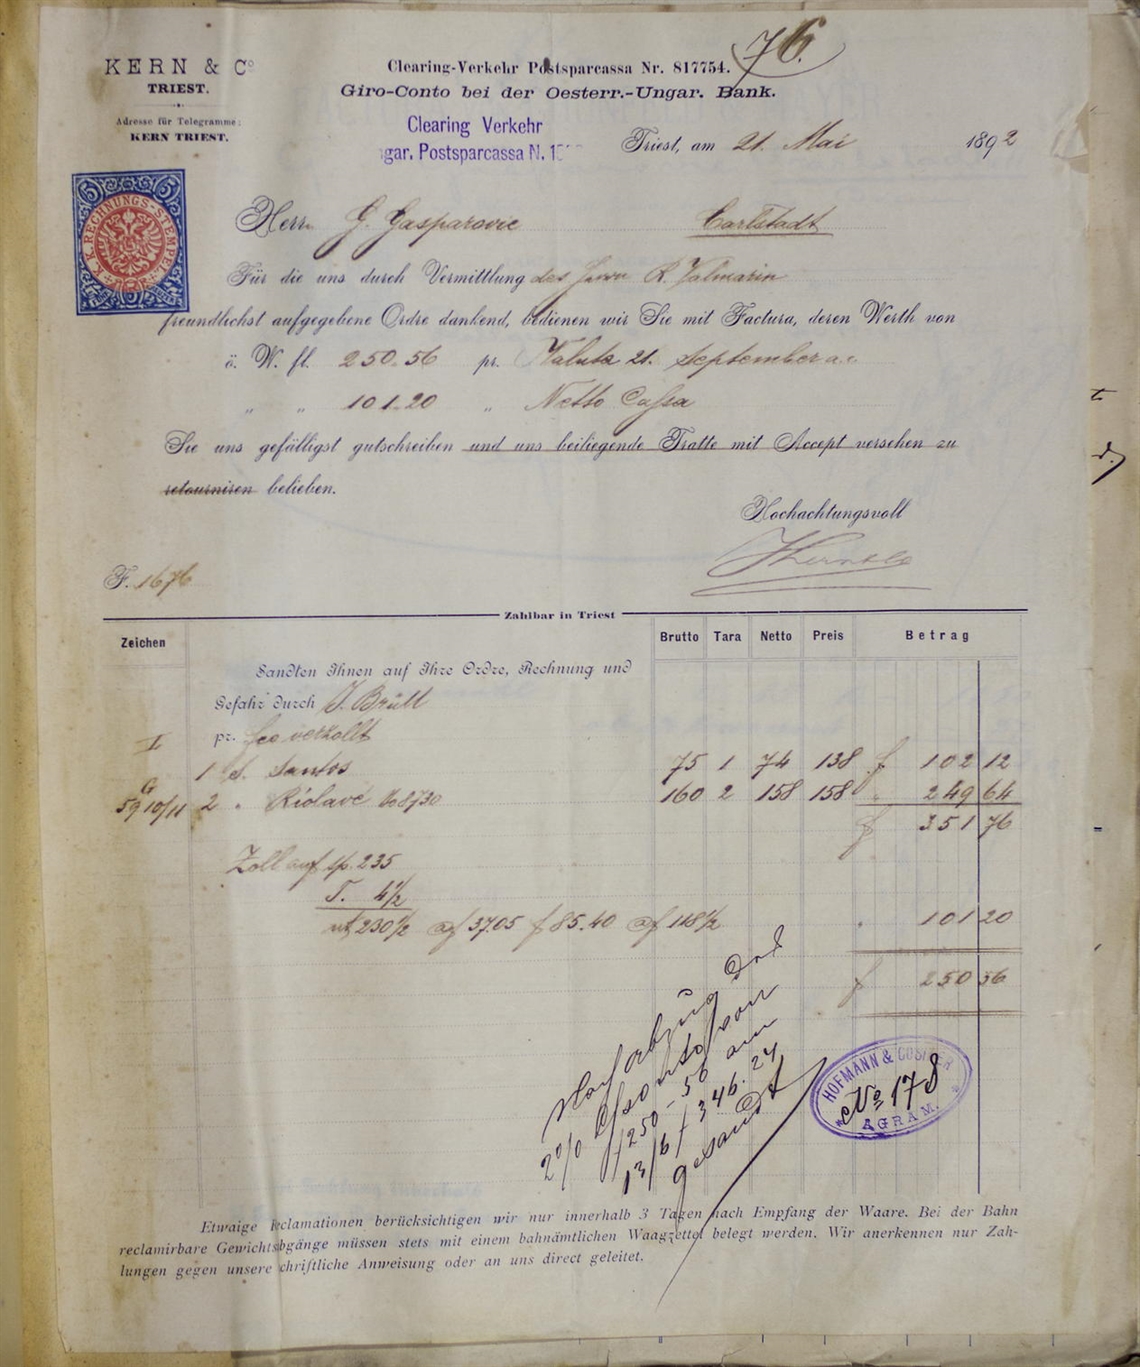 76.
KERN & Cº
TRIEST.
Adresse für Telegramme:
KERN TRIEST.
Clearing-Verkehr Postsparcassa Nr. 817754.
Giro-Conto bei der Oesterr.-Ungar. Bank.
Clearing Verkehr
gar. Postsparcassa N.
Triest, am 21. Mai 1892
5 5
K. K. RECHNUNGS-STEMPEL
5
Herrn G. Gasparovic Carlstadt
Für die uns durch Vermittlung des Herrn R. Valmarin
freundlichst aufgegebene Ordre dankend, bedienen wir Sie mit Factura, deren Werth von
ö. W. fl. 250.56 pr. Valuta 21. September a.c.
" " 101.20 " Netto Cassa
Sie uns gefälligst gutschreiben und uns beiliegende Tratte mit Accept versehen zu
retourniren belieben.
Hochachtungsvoll
F. 1676
Zahlbar in Triest
Zeichen Brutto Tara Netto Preis Betrag
Sandten Ihnen auf Ihre Ordre, Rechnung und
Gefahr durch J. Brüll
pr. fco verzollt
I 1 S. Santos 75 1 74 138 f 102 12
G
59 10/11 2 " 160 2 158 158 " 249 64
f 351 76
Zoll auf sp. 235
T. 4½
230½ 37.05 f 85.40 118½ " 101 20
f 250 56
2%
f 250-56 am
13/6 f 346.24
gesandt
HOFMANN &
No 178
AGRAM.
Etwaige Reclamationen berücksichtigen wir nur innerhalb 3 Tagen nach Empfang der Waare. Bei der Bahn
reclamirbare Gewichtsabgänge müssen stets mit einem bahnämtlichen Waagzettel belegt werden. Wir anerkennen nur Zah-
lungen gegen unsere schriftliche Anweisung oder an uns direct geleitet.